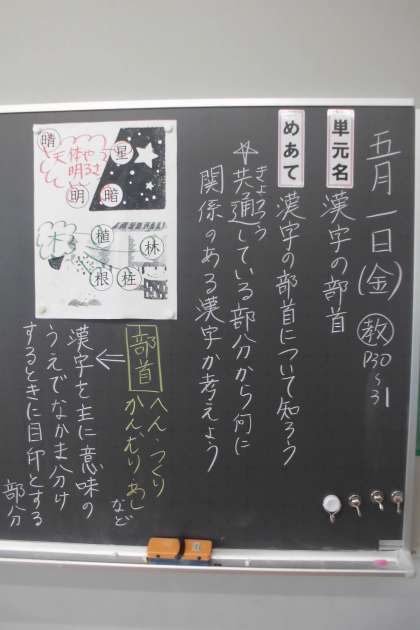 五月一日(金) 教 P30〜31
単元名 漢字の部首
めあて 漢字の部首について知ろう
☆共通している部分から何に
きょうつう
関係のある漢字か考えよう
晴
天体や
明るさ
星
明
暗
木
植
林
根
柱
部首
へん・つくり
かんむり・あし
など
漢字を主に意味の
うえでなかま分け
するときに目印とする
部分